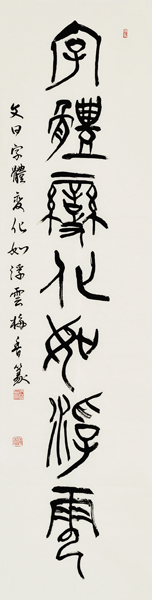 字體變化如浮雲
文曰字體變化如浮雲梅香篆